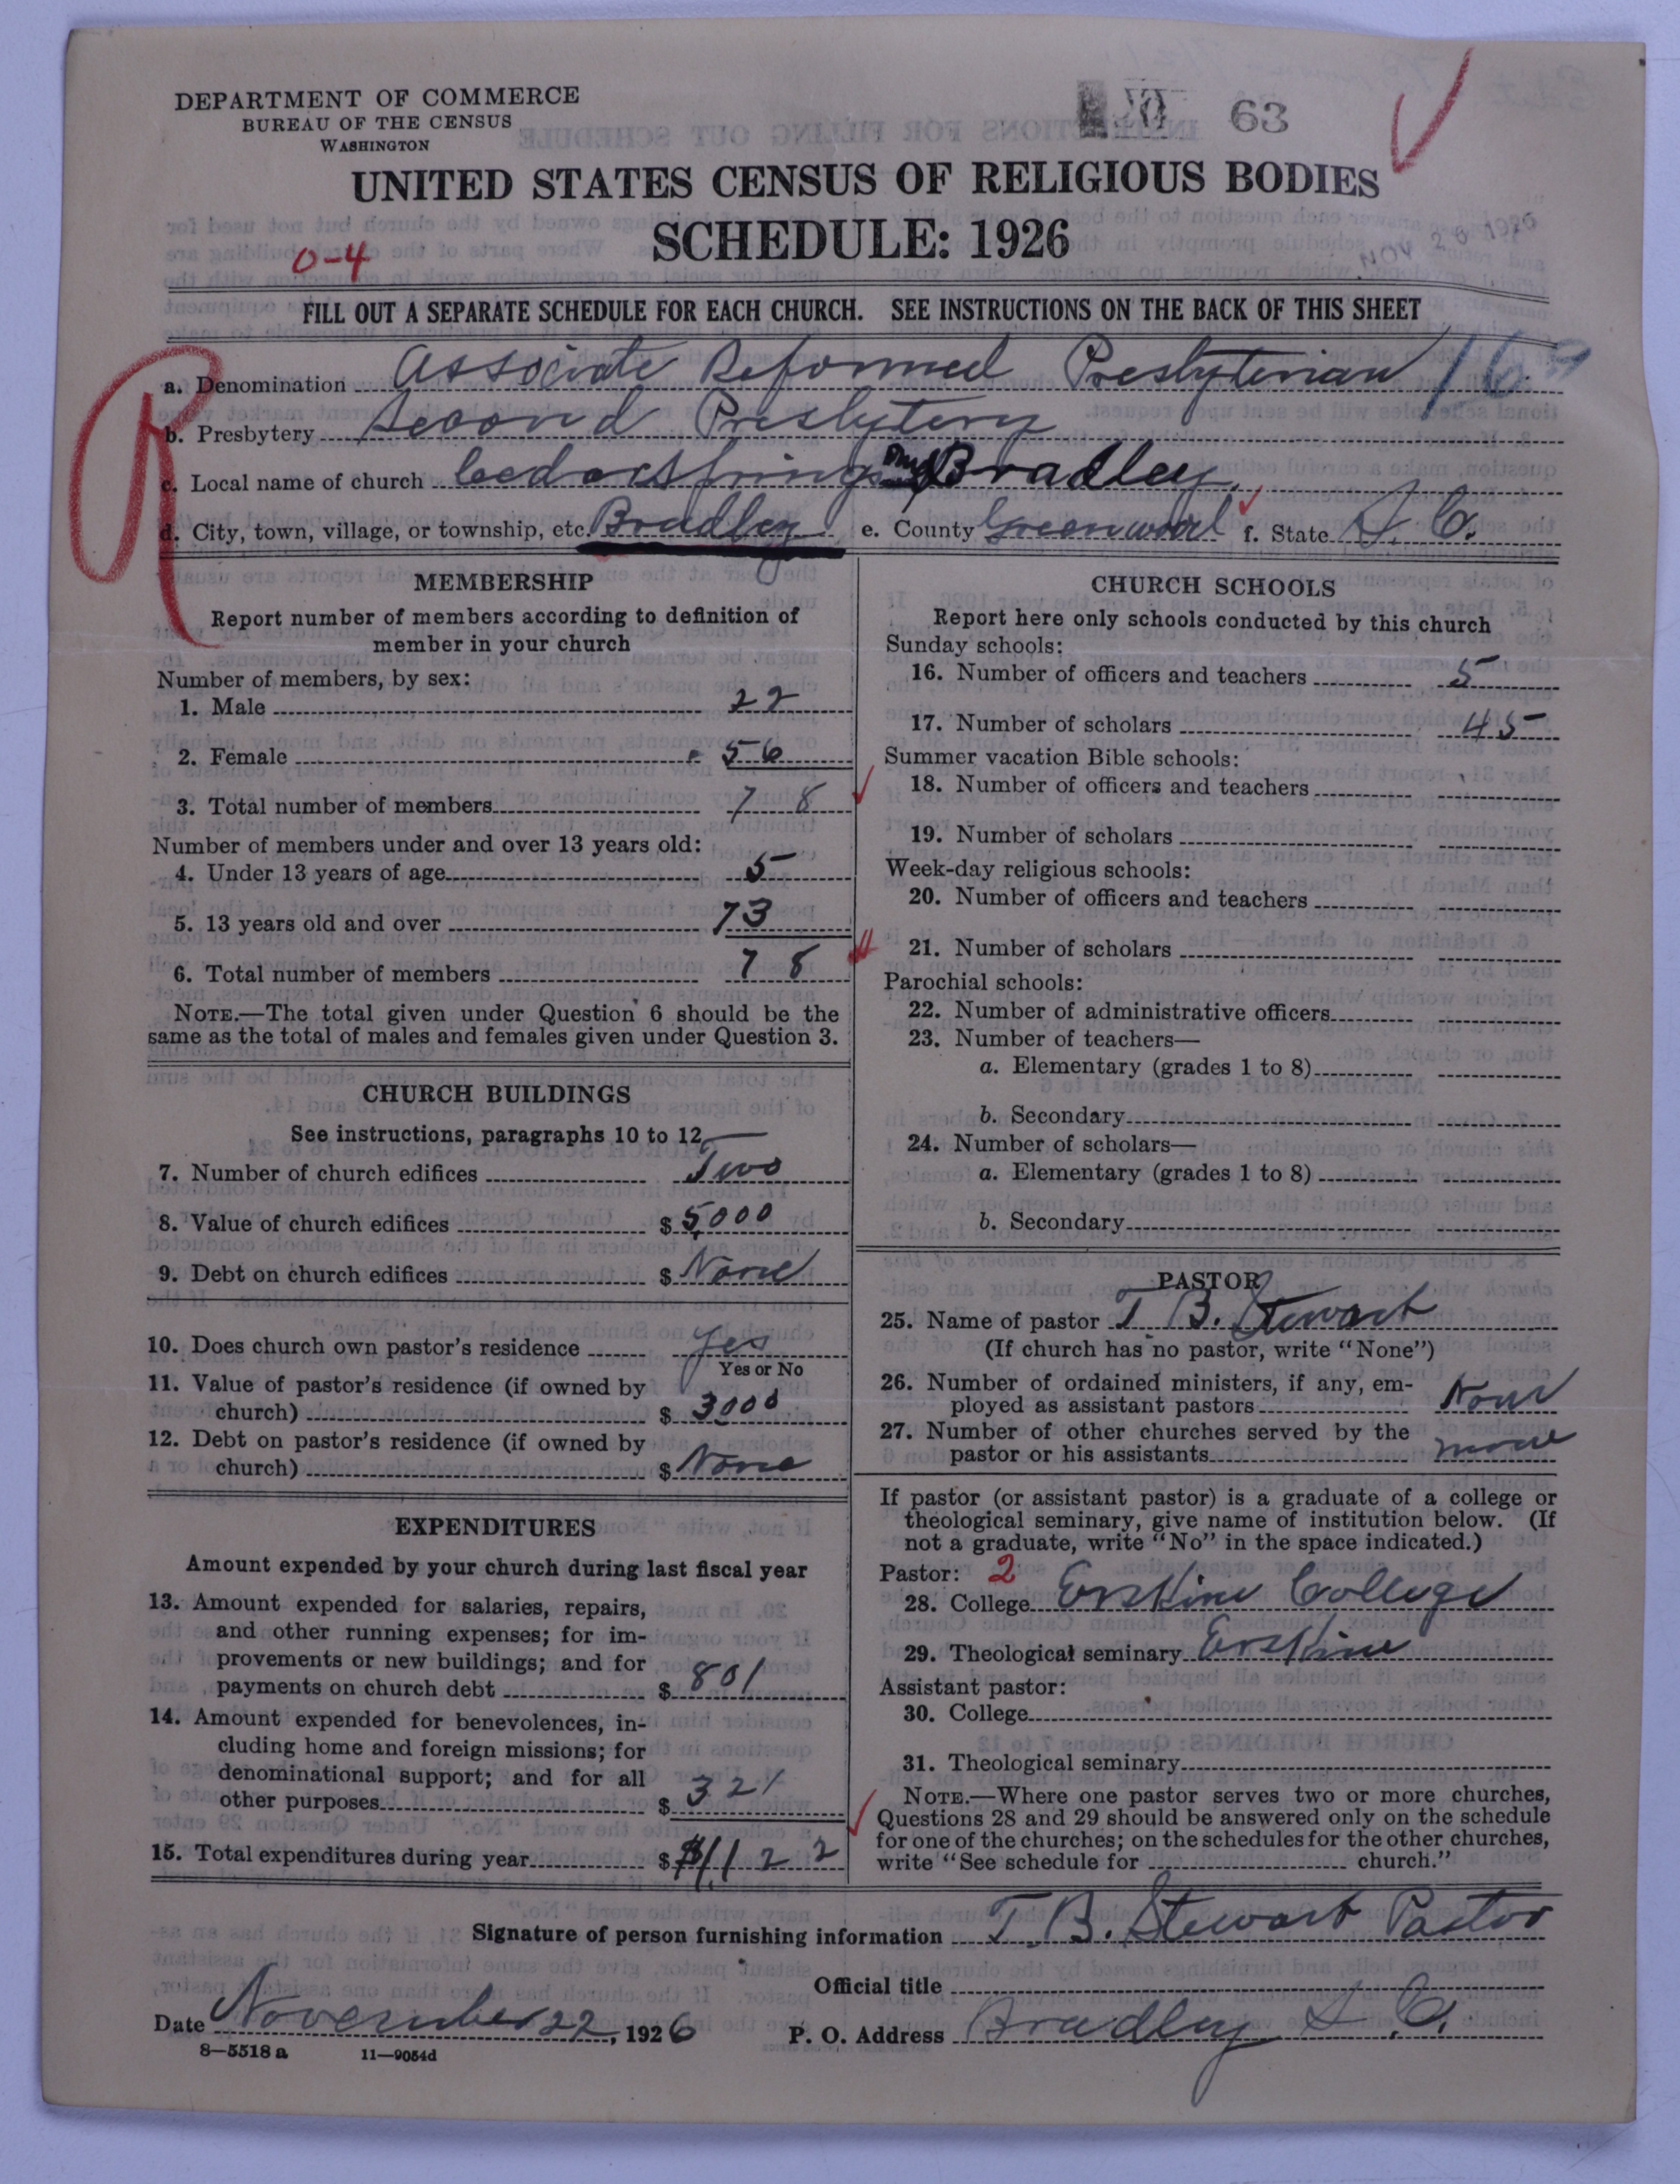 DEPARTMENT OF COMMERCE
BUREAU OF THE CENSUS
WASHINGTON
63
UNITED STATES CENSUS OF RELIGIOUS BODIES
SCHEDULE: 1926
NOV 26 1926
0-4
FILL OUT A SEPARATE SCHEDULE FOR EACH CHURCH. SEE INSTRUCTIONS ON THE BACK OF THIS SHEET
R
a. Denomination Associate Reformed Presbyterian
b. Presbytery Second Presbytery
c. Local name of church Cedar Springs and Bradley
d. City, town, village, or township, etc. Bradley e. County Greenwood f. State S. C.
MEMBERSHIP
Report number of members according to definition of
member in your church
Number of members, by sex:
1. Male 22
2. Female 56
3. Total number of members 78
Number of members under and over 13 years old:
4. Under 13 years of age 5
5. 13 years old and over 73
6. Total number of members 78
NOTE.—The total given under Question 6 should be the
same as the total of males and females given under Question 3.
CHURCH BUILDINGS
See instructions, paragraphs 10 to 12
7. Number of church edifices Two
8. Value of church edifices $ 5,000
9. Debt on church edifices $ None
10. Does church own pastor's residence Yes
Yes or No
11. Value of pastor's residence (if owned by
church) $ 3000
12. Debt on pastor's residence (if owned by
church) $ None
EXPENDITURES
Amount expended by your church during last fiscal year
13. Amount expended for salaries, repairs,
and other running expenses; for im-
provements or new buildings; and for
payments on church debt $ 801
14. Amount expended for benevolences, in-
cluding home and foreign missions; for
denominational support; and for all
other purposes $ 321
15. Total expenditures during year $ $1122
CHURCH SCHOOLS
Report here only schools conducted by this church
Sunday schools:
16. Number of officers and teachers 5
17. Number of scholars 45
Summer vacation Bible schools:
18. Number of officers and teachers
19. Number of scholars
Week-day religious schools:
20. Number of officers and teachers
21. Number of scholars
Parochial schools:
22. Number of administrative officers
23. Number of teachers—
a. Elementary (grades 1 to 8)
b. Secondary
24. Number of scholars—
a. Elementary (grades 1 to 8)
b. Secondary
PASTOR
25. Name of pastor T. B. Stewart
(If church has no pastor, write "None")
26. Number of ordained ministers, if any, em-
ployed as assistant pastors None
27. Number of other churches served by the
pastor or his assistants none
If pastor (or assistant pastor) is a graduate of a college or
theological seminary, give name of institution below. (If
not a graduate, write "No" in the space indicated.)
Pastor: 2
28. College Erskine College
29. Theological seminary Erskine
Assistant pastor:
30. College
31. Theological seminary
NOTE.—Where one pastor serves two or more churches,
Questions 28 and 29 should be answered only on the schedule
for one of the churches; on the schedules for the other churches,
write "See schedule for church."
Signature of person furnishing information T. B. Stewart Pastor
Official title
Date November 22, 1926 P. O. Address Bradley S. C.
8—5518 a 11—9054d